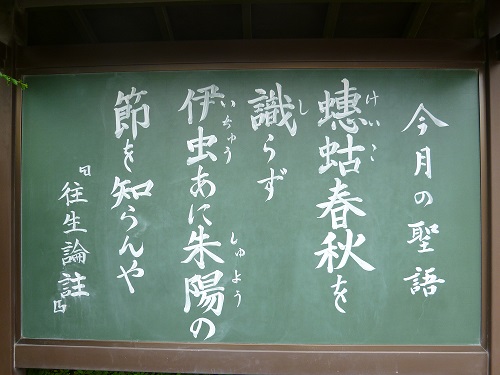 今月の聖語
蟪蛄春秋を
識らず
伊虫あに朱陽の
節を知らんや
『往生論註』
けいこ
し
いちゅう
しゅよう